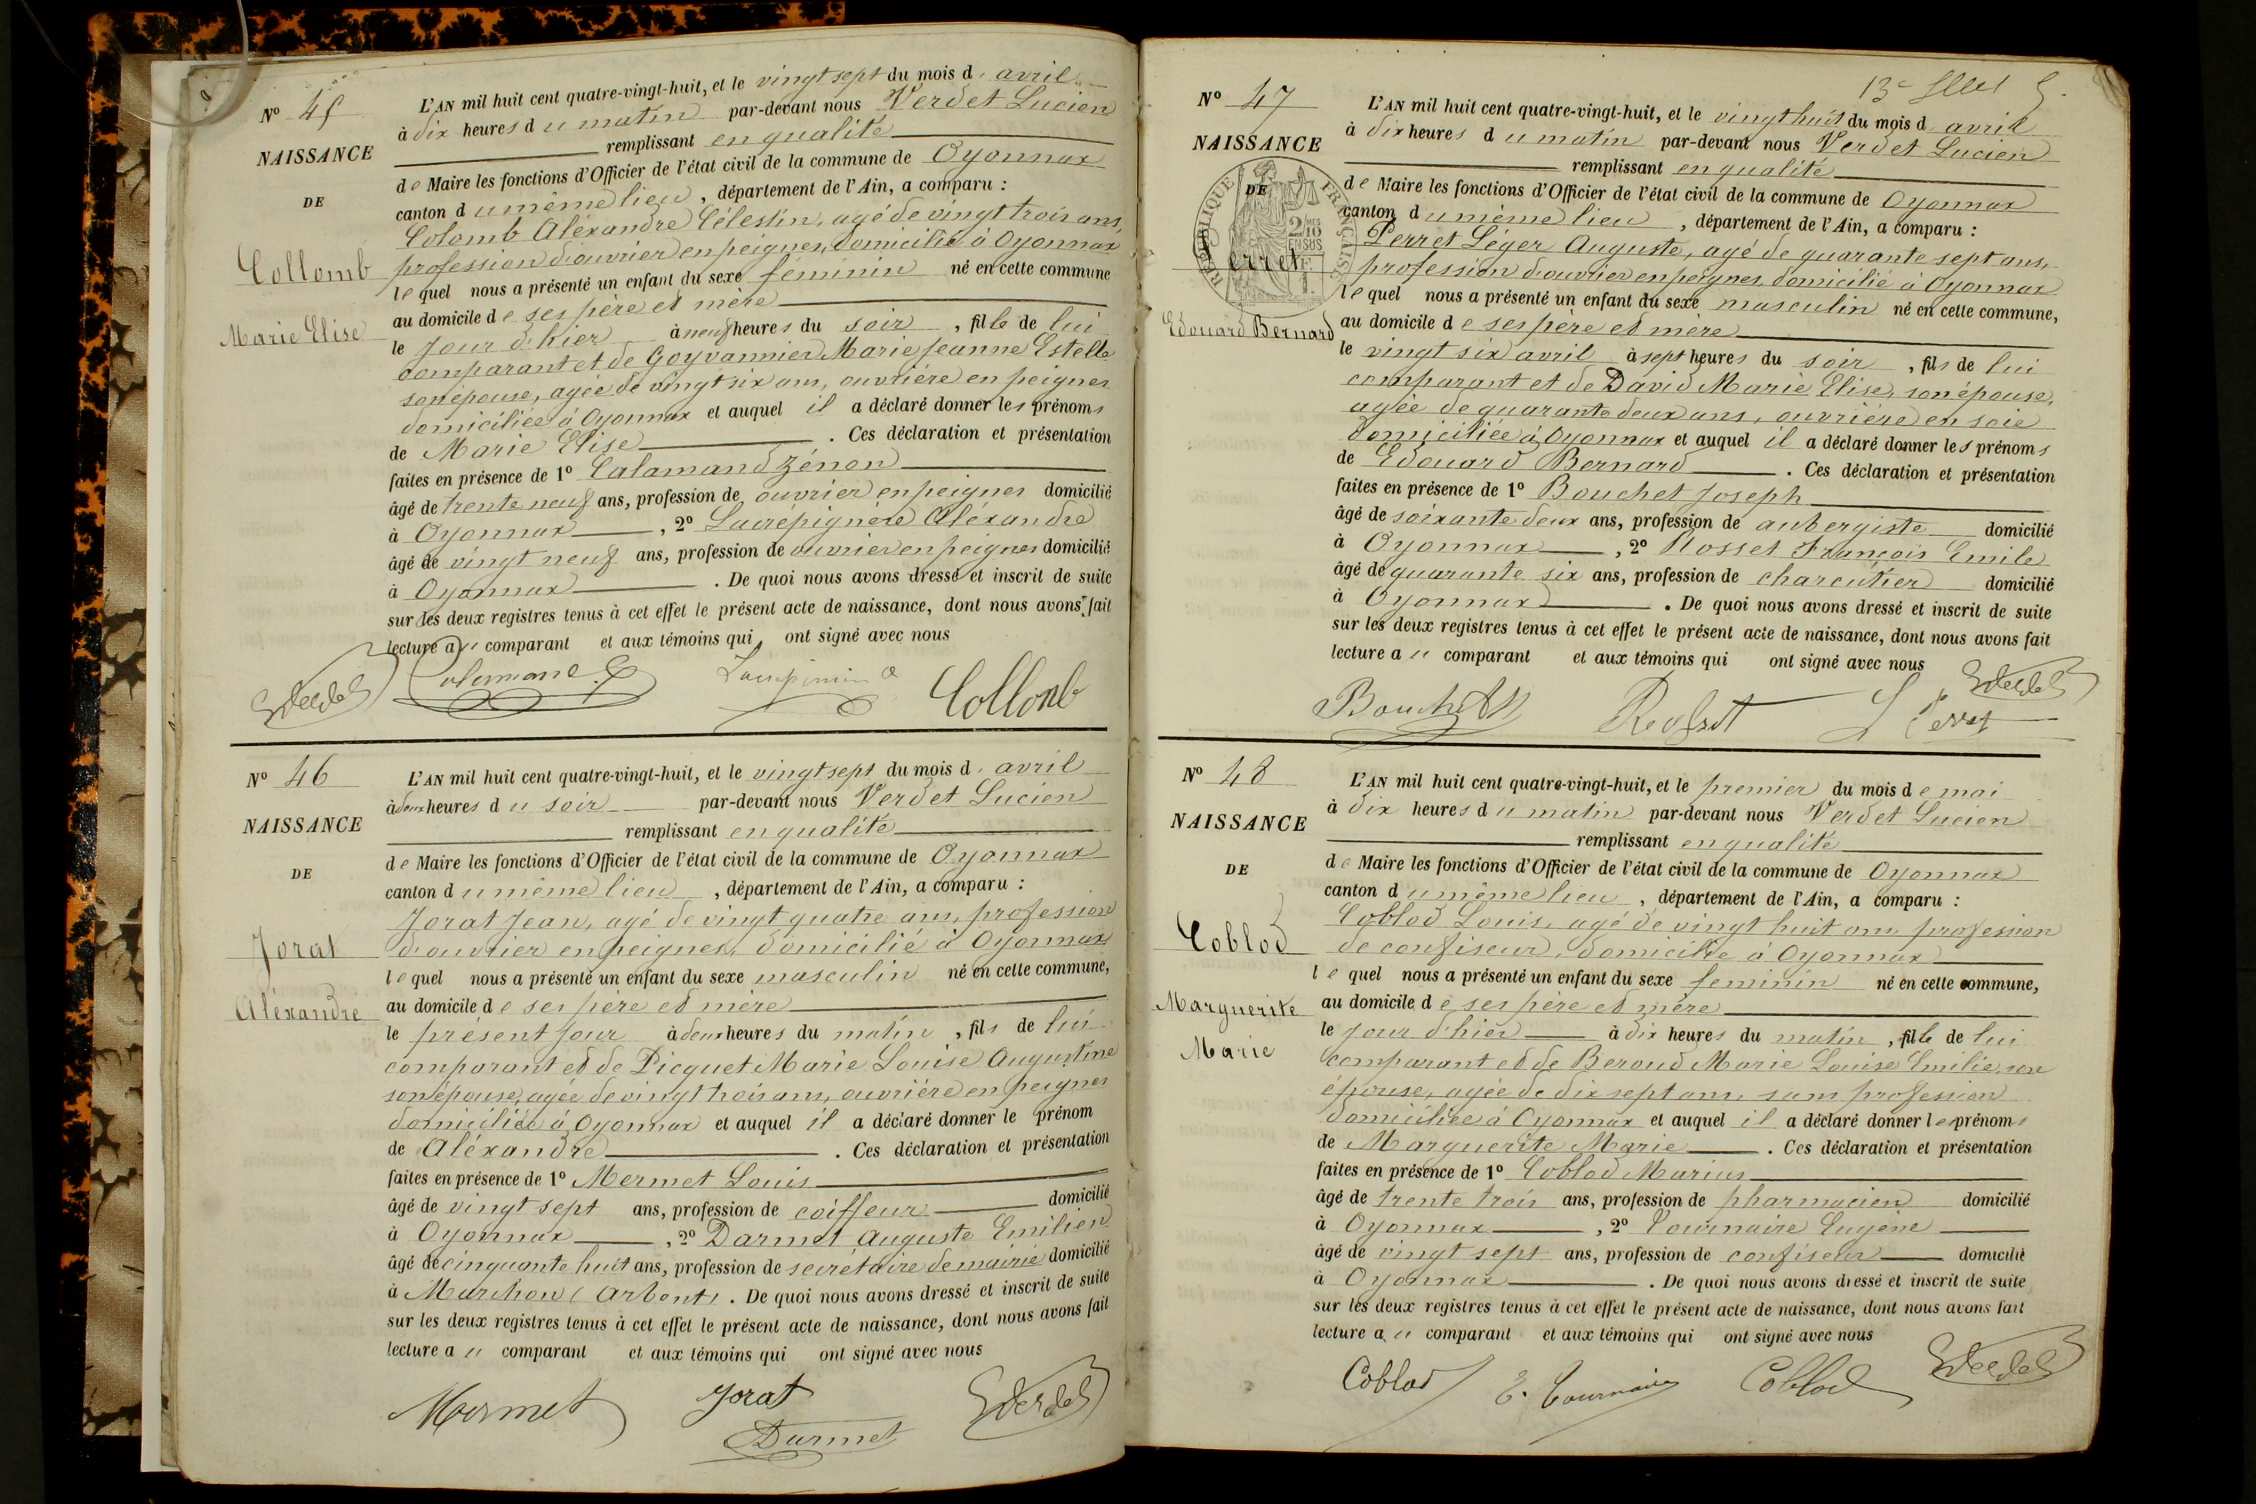 N° 45
NAISSANCE
DE
Collomb
Marie Elise
L'AN mil huit cent quatre-vingt-huit, et le vingt sept du mois d' avril
à dix heures du matin par-devant nous Verdet Lucien
remplissant en qualité
de Maire les fonctions d'Officier de l'état civil de la commune de Oyonnax
canton du même lieu, département de l'Ain, a comparu :
Colomb Aléxandre Célestin, agé de vingt trois ans,
profession d'ouvrier en peignes, domicilié à Oyonnax
lequel nous a présenté un enfant du sexe féminin né en cette commune
au domicile de ses père et mère
le jour d'hier à neuf heures du soir, fille de lui
comparant et de Goyvannier Marie Jeanne Estelle
son épouse, agée de vingt six ans, ouvrière en peignes
domiciliée à Oyonnax et auquel il a déclaré donner les prénoms
de Marie Elise. Ces déclaration et présentation
faites en présence de 1° Calamand Zénon
âgé de trente neuf ans, profession de ouvrier en peignes domicilié
à Oyonnax, 2° Lacrépignère Aléxandre
âgé de vingt neuf ans, profession de ouvrier en peignes domicilié
à Oyonnax. De quoi nous avons dressé et inscrit de suite
sur les deux registres tenus à cet effet le présent acte de naissance, dont nous avons fait
lecture au comparant et aux témoins qui ont signé avec nous
Verdet Calamand Z Collonb
N° 46
NAISSANCE
DE
Jorat
Aléxandre
L'AN mil huit cent quatre-vingt-huit, et le vingt sept du mois d' avril
à deux heures du soir par-devant nous Verdet Lucien
remplissant en qualité
de Maire les fonctions d'Officier de l'état civil de la commune de Oyonnax
canton du même lieu, département de l'Ain, a comparu :
Jorat Jean, agé de vingt quatre ans, profession
d'ouvrier en peignes, domicilié à Oyonnax
lequel nous a présenté un enfant du sexe masculin né en cette commune,
au domicile de ses père et mère
le présent jour à deux heures du matin, fils de lui
comparant et de Picquet Marie Louise Augustine
son épouse, agée de vingt trois ans, ouvrière en peignes
domiciliée à Oyonnax et auquel il a déclaré donner le prénom
de Aléxandre. Ces déclaration et présentation
faites en présence de 1° Mermet Louis
âgé de vingt sept ans, profession de coiffeur domicilié
à Oyonnax, 2° Darmet Auguste Emilien
âgé de cinquante huit ans, profession de secrétaire de mairie domicilié
à Marchon (Arbent). De quoi nous avons dressé et inscrit de suite
sur les deux registres tenus à cet effet le présent acte de naissance, dont nous avons fait
lecture au comparant et aux témoins qui ont signé avec nous
Mermet Jorat Verdet
Darmet
13e 5.
N° 47
NAISSANCE
DE
RÉPUBLIQUE FRANÇAISE
2 MES 10 EN SUS
1 F.
Perret
Edouard Bernard
L'AN mil huit cent quatre-vingt-huit, et le vingt huit du mois d' avril
à dix heures du matin par-devant nous Verdet Lucien
remplissant en qualité
de Maire les fonctions d'Officier de l'état civil de la commune de Oyonnax
canton du même lieu, département de l'Ain, a comparu :
Perret Léger Auguste, agé de quarante sept ans,
profession d'ouvrier en peignes, domicilié à Oyonnax
lequel nous a présenté un enfant du sexe masculin né en cette commune,
au domicile de ses père et mère
le vingt six avril à sept heures du soir, fils de lui
comparant et de David Marie Elise, son épouse,
agée de quarante deux ans, ouvrière en soie
domiciliée à Oyonnax et auquel il a déclaré donner les prénoms
de Edouard Bernard. Ces déclaration et présentation
faites en présence de 1° Bouchet Joseph
âgé de soixante deux ans, profession de aubergiste domicilié
à Oyonnax, 2° Rosset François Emile
âgé de quarante six ans, profession de charcutier domicilié
à Oyonnax. De quoi nous avons dressé et inscrit de suite
sur les deux registres tenus à cet effet le présent acte de naissance, dont nous avons fait
lecture au comparant et aux témoins qui ont signé avec nous
Bouchet Rosset L Perret Verdet
N° 48
NAISSANCE
DE
Coblod
Marguerite
Marie
L'AN mil huit cent quatre-vingt-huit, et le premier du mois de mai
à dix heures du matin par-devant nous Verdet Lucien
remplissant en qualité
de Maire les fonctions d'Officier de l'état civil de la commune de Oyonnax
canton du même lieu, département de l'Ain, a comparu :
Coblod Louis, agé de vingt huit ans profession
de confiseur, domicilié à Oyonnax
lequel nous a présenté un enfant du sexe féminin né en cette commune,
au domicile de ses père et mère
le jour d'hier à dix heures du matin, fille de lui
comparant et de Beroud Marie Louise Emilie, son
épouse, agée de dix sept ans, sans profession
domiciliée à Oyonnax et auquel il a déclaré donner les prénoms
de Marguerite Marie. Ces déclaration et présentation
faites en présence de 1° Coblod Marius
âgé de trente trois ans, profession de pharmacien domicilié
à Oyonnax, 2° Tournaire Eugène
âgé de vingt sept ans, profession de confiseur domicilié
à Oyonnax. De quoi nous avons dressé et inscrit de suite
sur les deux registres tenus à cet effet le présent acte de naissance, dont nous avons fait
lecture au comparant et aux témoins qui ont signé avec nous
Coblod E. Tournaire Coblod Verdet